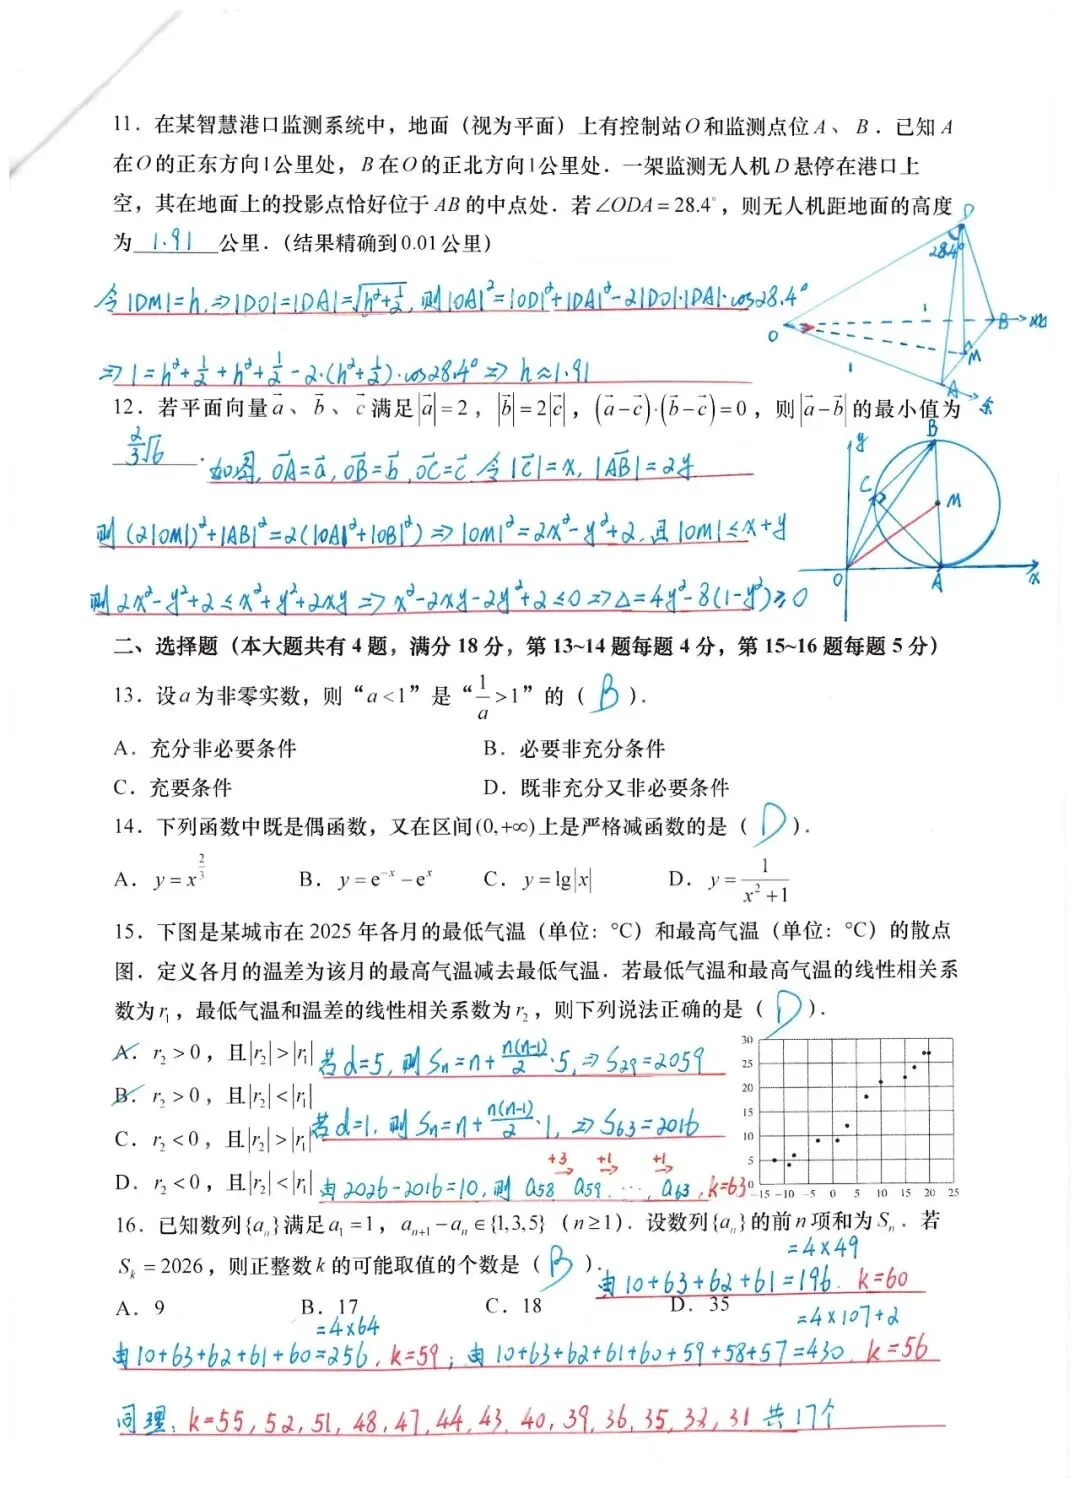 11．在某智慧港口监测系统中，地面（视为平面）上有控制站O和监测点位A、B．已知A
在O的正东方向1公里处，B在O的正北方向1公里处．一架监测无人机D悬停在港口上
空，其在地面上的投影点恰好位于AB的中点处．若∠ODA=28.4°，则无人机距地面的高度
为 1.91 公里．（结果精确到0.01公里）
D
28.4°
O
1
B
北
M
1
A
东
令|DM|=h,⇒|DO|=|DA|=√(h²+1/2),则|OA|²=|OD|²+|DA|²-2|DO|·|DA|·cos28.4°
⇒1=h²+1/2+h²+1/2-2·(h²+1/2)·cos28.4°⇒h≈1.91
12．若平面向量a⃗、b⃗、c⃗满足|a⃗|=2，|b⃗|=2|c⃗|，(a⃗-c⃗)·(b⃗-c⃗)=0，则|a⃗-b⃗|的最小值为
2/3√6 ．
如图,OA⃗=a⃗,OB⃗=b⃗,OC⃗=c⃗,令|c⃗|=x,|AB⃗|=2y
则(2|OM|)²+|AB|²=2(|OA|²+|OB|²)⇒|OM|²=2x²-y²+2,且|OM|≤x+y
则2x²-y²+2≤x²+y²+2xy⇒x²-2xy-2y²+2≤0⇒Δ=4y²-8(1-y²)≥0
y
B
C
M
O
A
x
二、选择题（本大题共有4题，满分18分，第13~14题每题4分，第15~16题每题5分）
13．设a为非零实数，则“a<1”是“1/a>1”的（ B ）．
A．充分非必要条件 B．必要非充分条件
C．充要条件 D．既非充分又非必要条件
14．下列函数中既是偶函数，又在区间(0,+∞)上是严格减函数的是（ D ）．
A．y=x^(2/3) B．y=e⁻ˣ-eˣ C．y=lg|x| D．y=1/(x²+1)
15．下图是某城市在2025年各月的最低气温（单位：°C）和最高气温（单位：°C）的散点
图．定义各月的温差为该月的最高气温减去最低气温．若最低气温和最高气温的线性相关系
数为r₁，最低气温和温差的线性相关系数为r₂，则下列说法正确的是（ D ）．
A．r₂>0，且|r₂|>|r₁| 若d=5,则Sn=n+n(n-1)/2·5,⇒S29=2059
B．r₂>0，且|r₂|<|r₁|
C．r₂<0，且|r₂|>|r₁| 若d=1,则Sn=n+n(n-1)/2·1,⇒S63=2016
+3 +1 +1
D．r₂<0，且|r₂|<|r₁| 由2026-2016=10,则a58→a59→…→a63,k=63
30
25
20
15
10
5
0
-15 -10 -5 0 5 10 15 20 25
16．已知数列{aₙ}满足a₁=1，aₙ₊₁-aₙ∈{1,3,5}（n≥1）．设数列{aₙ}的前n项和为Sₙ．若
Sₖ=2026，则正整数k的可能取值的个数是（ B ）．
=4×49
由10+63+62+61=196. k=60
A．9 B．17 C．18 D．35
=4×64 =4×107+2
由10+63+62+61+60=256,k=59；由10+63+62+61+60+59+58+57=430,k=56
同理,k=55,52,51,48,47,44,43,40,39,36,35,32,31共17个